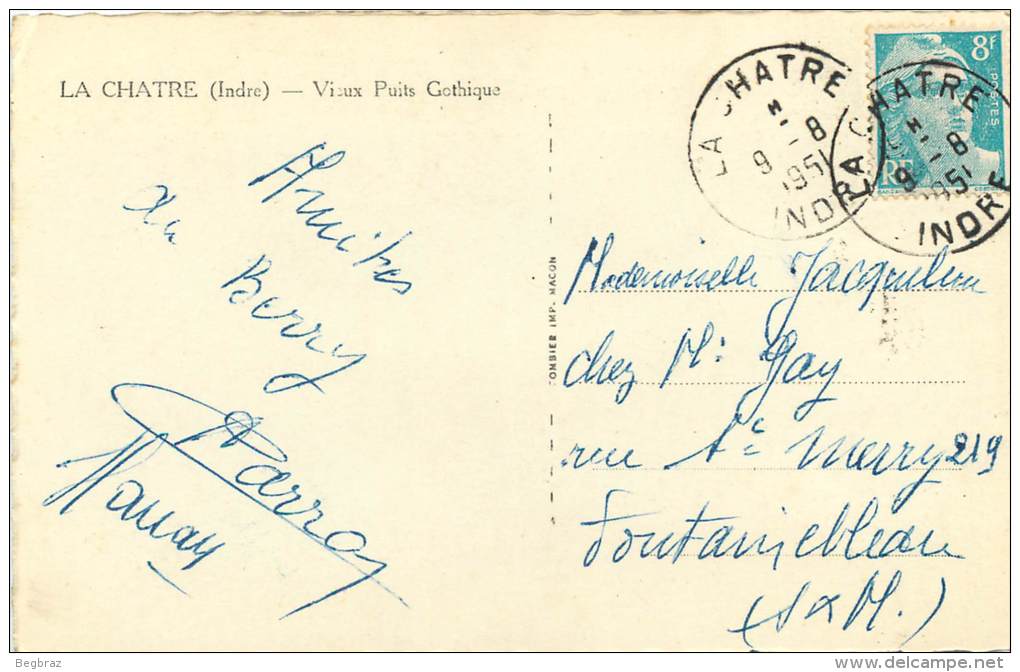 LA CHATRE (Indre) — Vieux Puits Gothique
Amities
du
Berry
TOMBIER IMP. MACON
8F
POSTES
RF
LA CHATRE
9 - 8
1951
INDRE
LA CHATRE
9 - 8
1951
INDRE
Mademoiselle Jacqueline
chez Mr Gay
rue St Merry 219
Fontainebleau
(S & M.)
Begbraz
www.delcampe.net